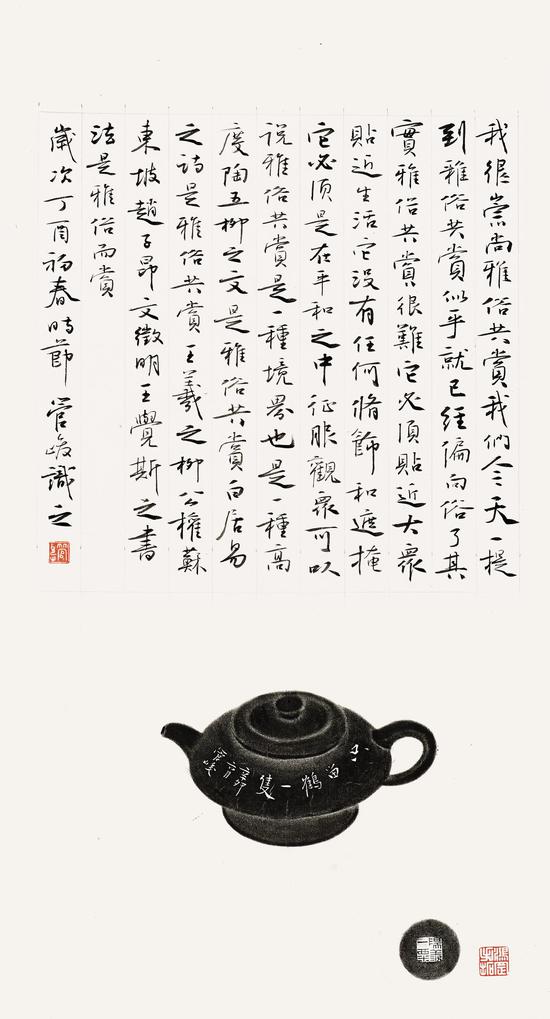 我很崇尚雅俗共賞我們今天一提
到雅俗共賞似乎就已經偏向俗了其
實雅俗共賞很難它必須貼近大衆
貼近生活它没有任何脩飾和遮掩
它必須是在平和之中征服觀衆可以
说雅俗共賞是一種境界也是一種高
度陶五柳之文是雅俗共賞白居易
之詩是雅俗共賞王羲之柳公權蘇
東坡趙子昂文徵明王覺斯之書
法是雅俗而賞
歲次丁酉初春時節 管峻識之
留鶴一隻
辛卯
管峻